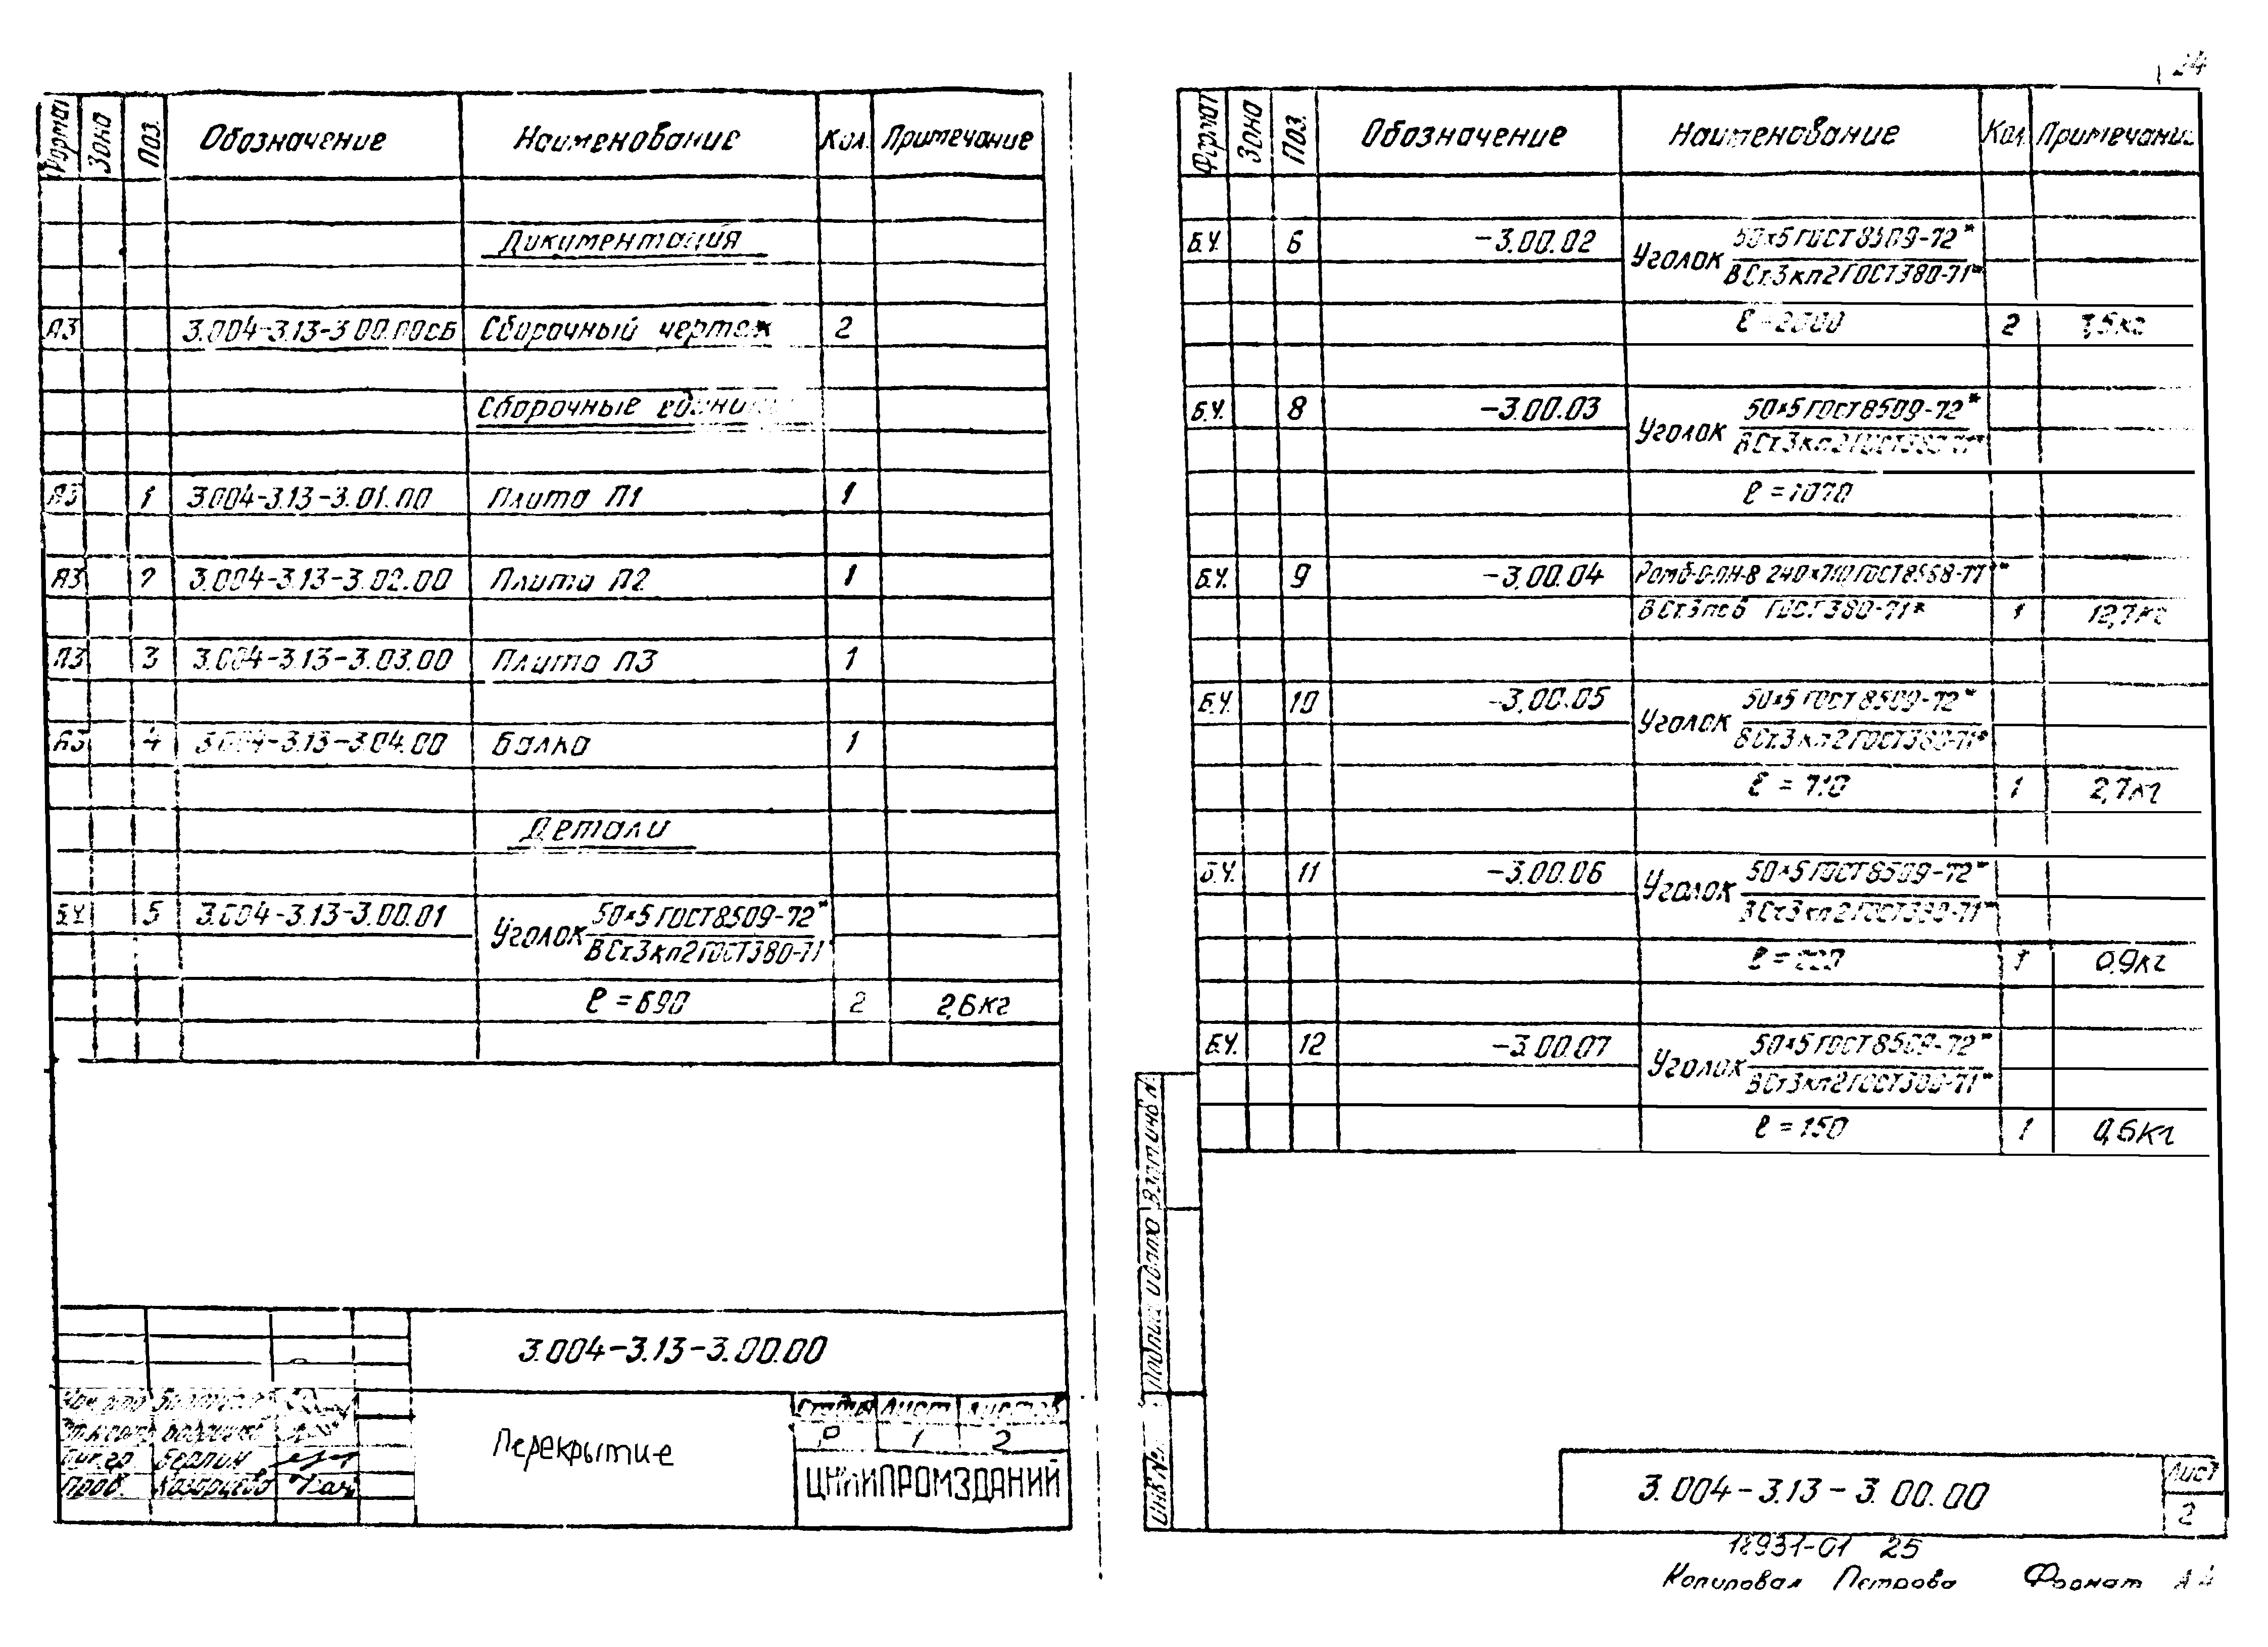 Формат Зона Поз. Обозначение Наименование Кол. Примечание
Документация
А3 3.004-3.13-3.00.00СБ Сборочный чертеж 2
Сборочные единицы
А3 1 3.004-3.13-3.01.00 Плита П1 1
А3 2 3.004-3.13-3.02.00 Плита П2 1
А3 3 3.004-3.13-3.03.00 Плита П3 1
А3 4 3.004-3.13-3.04.00 Балка 1
Детали
Б.Ч. 5 3.004-3.13-3.00.01 Уголок 50×5 ГОСТ 8509-72*
ВСт.3кп2 ГОСТ 380-71*
ℓ = 690 2 2,6кг
3.004-3.13-3.00.00
Перекрытие
Стадия Лист Листов
Р 1 2
ЦНИИПРОМЗДАНИЙ
Берлин
Пров. Казарцева
24
Формат Зона Поз. Обозначение Наименование Кол. Примечание
Б.Ч. 6 -3.00.02 Уголок 50×5 ГОСТ 8509-72*
ВСт.3кп2 ГОСТ 380-71*
ℓ = 2000 2 7,5кг
Б.Ч. 8 -3.00.03 Уголок 50×5 ГОСТ 8509-72*
ВСт.3кп2 ГОСТ 380-71*
ℓ = 1070
Б.Ч. 9 -3.00.04 Ромб-О-ПН-8 240×710 ГОСТ 8568-77*
ВСт.3пс6 ГОСТ 380-71* 1 12,7кг
Б.Ч. 10 -3.00.05 Уголок 50×5 ГОСТ 8509-72*
ВСт.3кп2 ГОСТ 380-71*
ℓ = 710 1 2,7кг
Б.Ч. 11 -3.00.06 Уголок 50×5 ГОСТ 8509-72*
ВСт.3кп2 ГОСТ 380-71*
ℓ = 1 0,9кг
Б.Ч. 12 -3.00.07 Уголок 50×5 ГОСТ 8509-72*
ВСт.3кп2 ГОСТ 380-71*
ℓ = 150 1 0,6кг
Взам.инв.№
Подпись и дата
Инв.№
3.004-3.13-3.00.00
Лист
2
18931-01 25
Копировал Петрова Формат А4